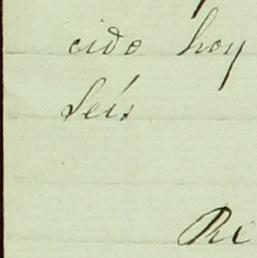 cido hoy
Seis
Re